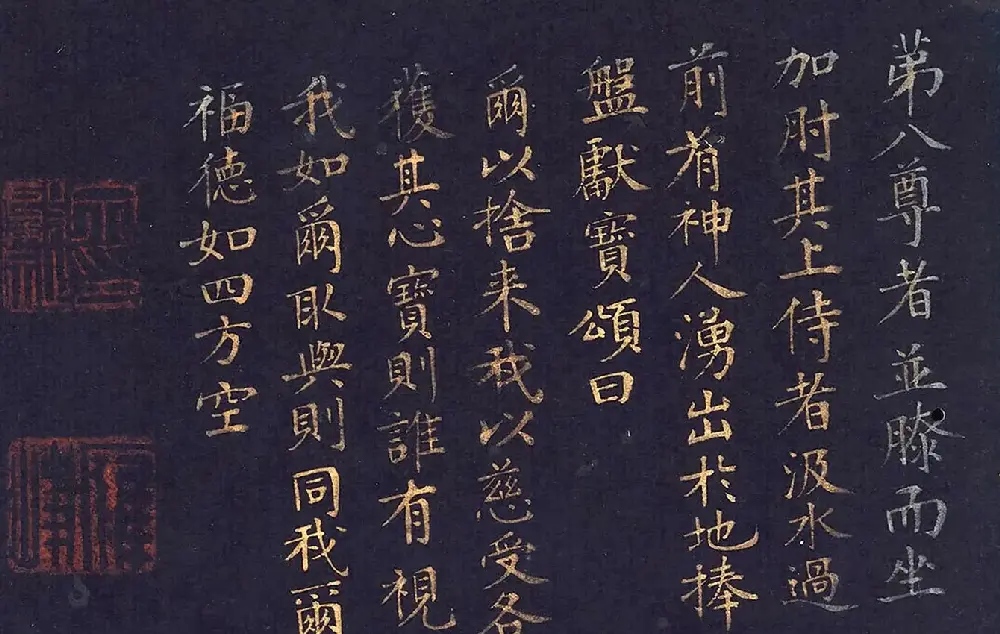 第八尊者並膝而坐
加肘其上侍者汲水過
前有神人湧出於地捧
盤獻寶頌曰
爾以捨来我以慈受各
獲其心寶則誰有視
我如爾取與則同我爾
福德如四方空